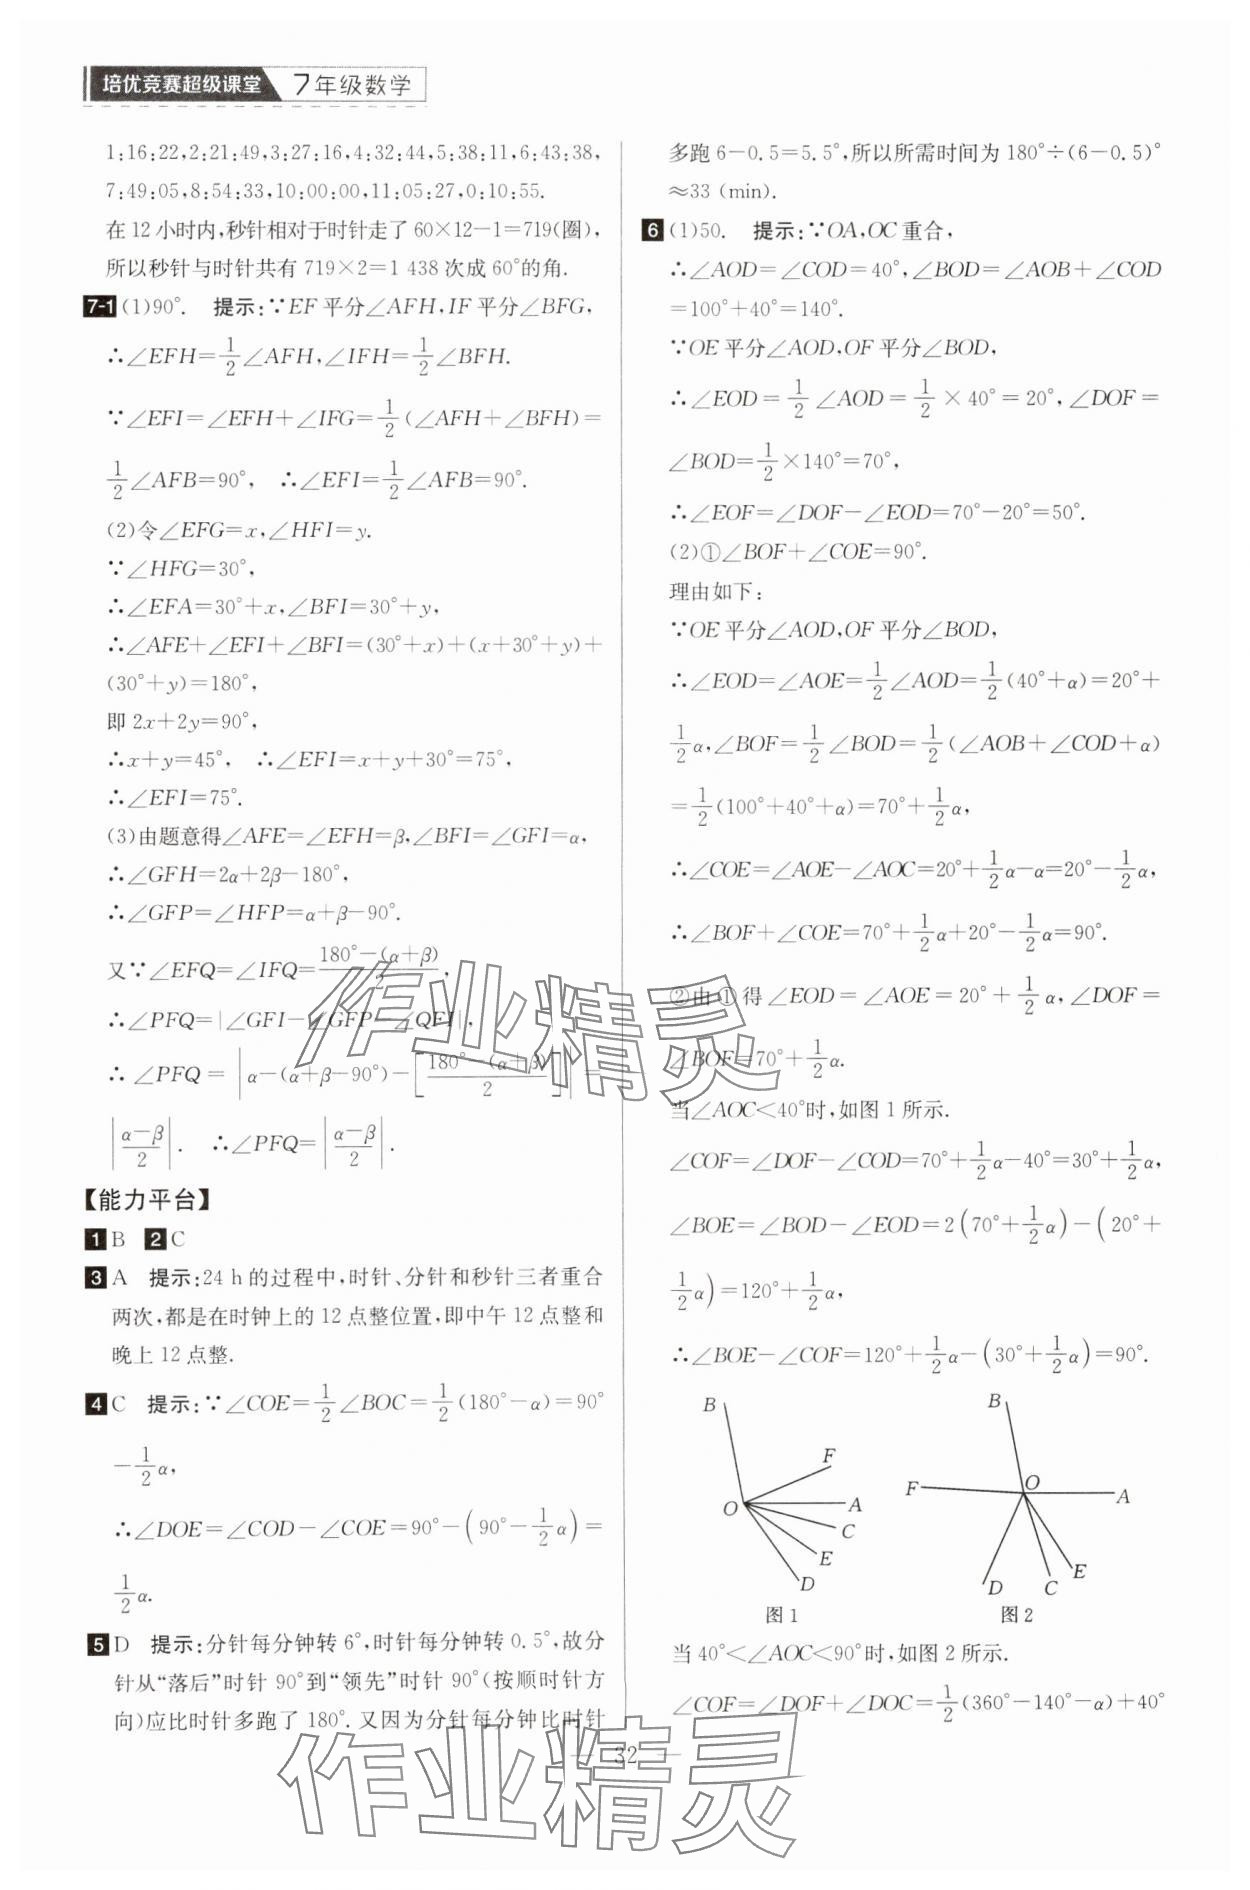 培优竞赛超级课堂 7年级数学
1:16:22,2:21:49,3:27:16,4:32:44,5:38:11,6:43:38,
7:49:05,8:54:33,10:00:00,11:05:27,0:10:55.
在12小时内,秒针相对于时针走了60×12-1=719(圈),
所以秒针与时针共有719×2=1 438次成60°的角.
7-1 (1)90°. 提示:∵EF平分∠AFH,IF平分∠BFG,
∴∠EFH=1/2∠AFH,∠IFH=1/2∠BFH.
∵∠EFI=∠EFH+∠IFG=1/2(∠AFH+∠BFH)=
1/2∠AFB=90°, ∴∠EFI=1/2∠AFB=90°.
(2)令∠EFG=x,∠HFI=y.
∵∠HFG=30°,
∴∠EFA=30°+x,∠BFI=30°+y,
∴∠AFE+∠EFI+∠BFI=(30°+x)+(x+30°+y)+
(30°+y)=180°,
即2x+2y=90°,
∴x+y=45°, ∴∠EFI=x+y+30°=75°,
∴∠EFI=75°.
(3)由题意得∠AFE=∠EFH=β,∠BFI=∠GFI=α,
∴∠GFH=2α+2β-180°,
∴∠GFP=∠HFP=α+β-90°.
又∵∠EFQ=∠IFQ=(180°-(α+β))/2,
∴∠PFQ=|∠GFI-∠GFP-∠QFI|,
∴∠PFQ=|α-(α+β-90°)-[(180°-(α+β))/2]|=
|(α-β)/2|. ∴∠PFQ=|(α-β)/2|.
【能力平台】
1 B 2 C
3 A 提示:24 h的过程中,时针、分针和秒针三者重合
两次,都是在时钟上的12点整位置,即中午12点整和
晚上12点整.
4 C 提示:∵∠COE=1/2∠BOC=1/2(180°-α)=90°
-1/2α,
∴∠DOE=∠COD-∠COE=90°-(90°-1/2α)=
1/2α.
5 D 提示:分针每分钟转6°,时针每分钟转0.5°,故分
针从“落后”时针90°到“领先”时针90°(按顺时针方
向)应比时针多跑了180°.又因为分针每分钟比时针
多跑6-0.5=5.5°,所以所需时间为180°÷(6-0.5)°
≈33 (min).
6 (1)50. 提示:∵OA,OC重合,
∴∠AOD=∠COD=40°,∠BOD=∠AOB+∠COD
=100°+40°=140°.
∵OE平分∠AOD,OF平分∠BOD,
∴∠EOD=1/2∠AOD=1/2×40°=20°,∠DOF=
∠BOD=1/2×140°=70°,
∴∠EOF=∠DOF-∠EOD=70°-20°=50°.
(2)①∠BOF+∠COE=90°.
理由如下:
∵OE平分∠AOD,OF平分∠BOD,
∴∠EOD=∠AOE=1/2∠AOD=1/2(40°+α)=20°+
1/2α,∠BOF=1/2∠BOD=1/2(∠AOB+∠COD+α)
=1/2(100°+40°+α)=70°+1/2α,
∴∠COE=∠AOE-∠AOC=20°+1/2α-α=20°-1/2α,
∴∠BOF+∠COE=70°+1/2α+20°-1/2α=90°.
②由①得∠EOD=∠AOE=20°+1/2α,∠DOF=
∠BOF=70°+1/2α.
当∠AOC<40°时,如图1所示.
∠COF=∠DOF-∠COD=70°+1/2α-40°=30°+1/2α,
∠BOE=∠BOD-∠EOD=2(70°+1/2α)-(20°+
1/2α)=120°+1/2α,
∴∠BOE-∠COF=120°+1/2α-(30°+1/2α)=90°.
B F O A C E D
图1
B F O A E D C
图2
当40°<∠AOC<90°时,如图2所示.
∠COF=∠DOF+∠DOC=1/2(360°-140°-α)+40°
— 32 —
作业精灵
作业精灵